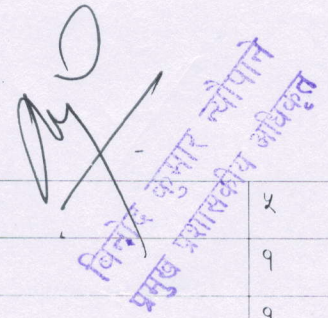 विनोद कुमार न्यौपाने
प्रमुख प्रशासकीय अधिकृत
५
१